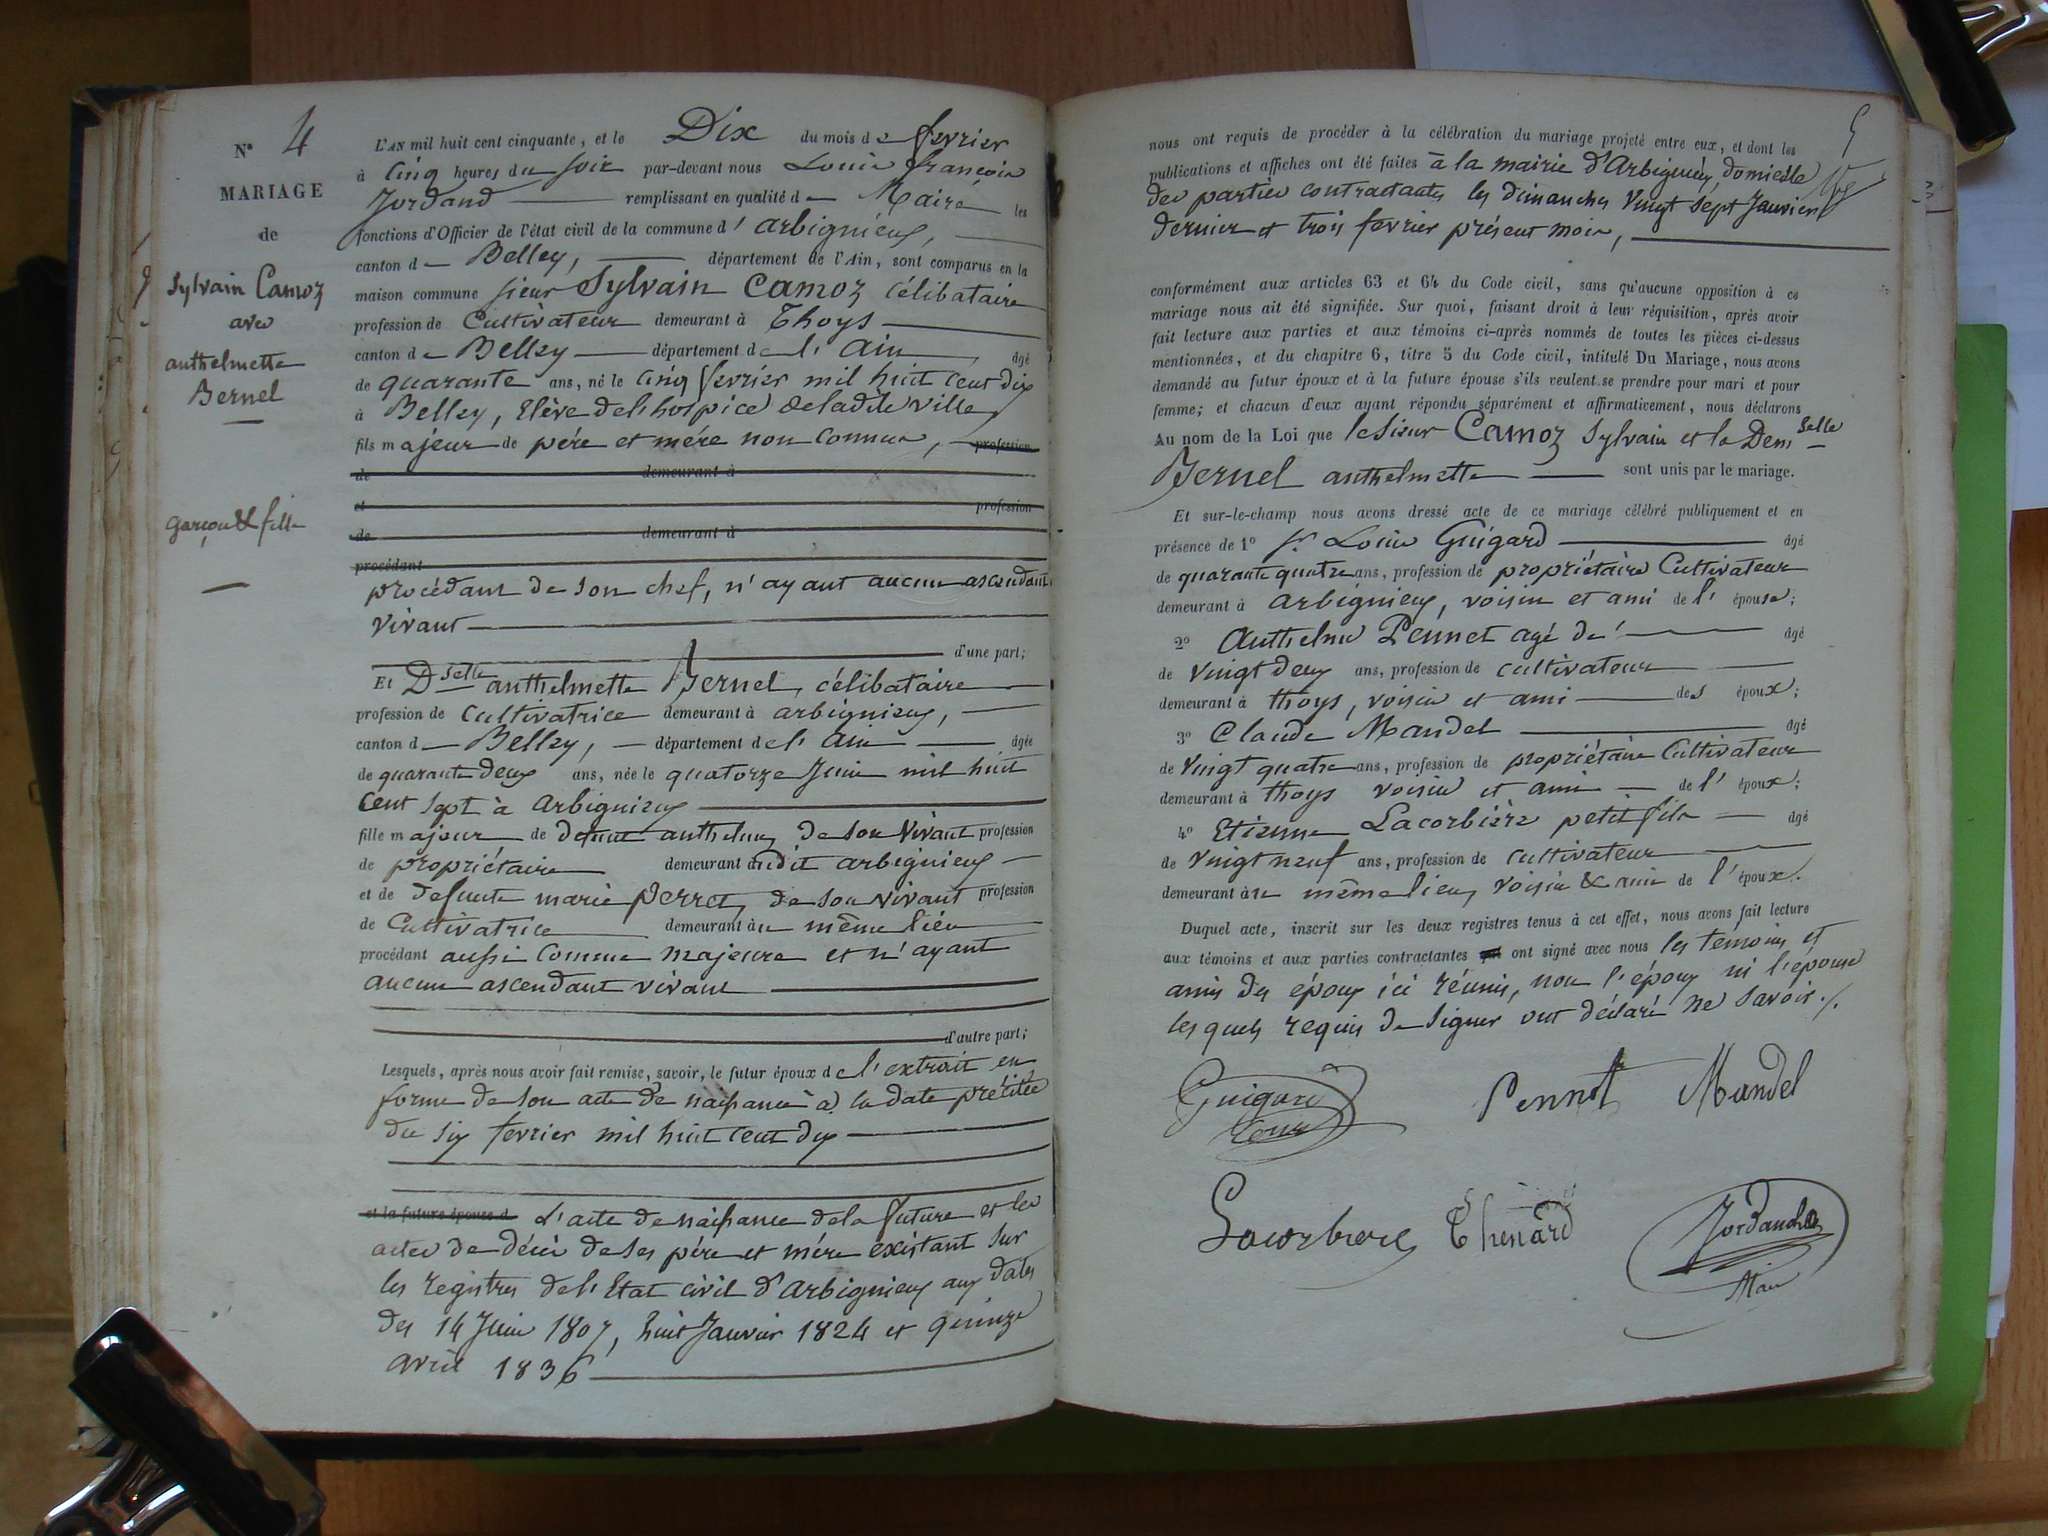 N° 4
MARIAGE
de
Sylvain Camoz
avec
anthelmette
Bernel
garçon & fille
L'AN mil huit cent cinquante, et le Dix du mois de fevrier
à cinq heures du soir par-devant nous Louis françois
Jordand remplissant en qualité de Maire les
fonctions d'Officier de l'état civil de la commune d'arbignieux,
canton de Belley, département de l'Ain, sont comparus en la
maison commune sieur Sylvain Camoz célibataire
profession de Cultivateur demeurant à Thoys
canton de Belley département de l'ain âgé
de quarante ans, né le cinq fevrier mil huit cent dix
à Belley, Elève de l'hospice de ladite ville
fils majeur de pére et mére non connus, profession
de demeurant à
et profession
de demeurant à
procédant
procédant de son chef, n'ayant aucun ascendant
vivant
d'une part;
Et Dselle anthelmette Bernel, célibataire
profession de cultivatrice demeurant à arbignieux,
canton de Belley, département de l'ain âgée
de quarante deux ans, née le quatorze Juin mil huit
cent sept à arbignieux
fille majeur de defunt anthelme, de son vivant profession
de propriétaire demeurant audit arbignieux
et de defunte marie perret, de son vivant profession
de Cultivatrice demeurant au même lieu
procédant aussi comme majeure et n'ayant
aucun ascendant vivant
d'autre part;
Lesquels, après nous avoir fait remise, savoir, le futur époux de l'extrait en
forme de son acte de naissance à la date précitée
du six fevrier mil huit cent dix
et la future épouse d L'acte de naissance de la future et les
actes de décès de ses pére et mére existant sur
les registres de l'Etat civil d'arbignieux aux dates
des 14 Juin 1807, huit Janvier 1824 et quinze
avril 1836
5
nous ont requis de procéder à la célébration du mariage projeté entre eux, et dont les
publications et affiches ont été faites à la mairie d'Arbignieux, domicile
des parties contractantes les dimanches vingt sept Janvier
dernier et trois fevrier présent mois,
conformément aux articles 63 et 64 du Code cicil, sans qu'aucune opposition à ce
mariage nous ait été signifiée. Sur quoi, faisant droit à leur réquisition, après avoir
fait lecture aux parties et aux témoins ci-après nommés de toutes les pièces ci-dessus
mentionnées, et du chapitre 6, titre 5 du Code civil, intitulé Du Mariage, nous avons
demandé au futur époux et à la future épouse s'ils veulent se prendre pour mari et pour
femme; et chacun d'eux ayant répondu séparément et affirmativement, nous déclarons
Au nom de la Loi que le Sieur Camoz Sylvain et la Demselle
Bernel anthelmette sont unis par le mariage.
Et sur-le-champ nous avons dressé acte de ce mariage célébré publiquement et en
présence de 1° sr Louis Guigard âgé
de quarante quatre ans, profession de propriétaire Cultivateur
demeurant à arbignieux, voisin et ami de l'épouse;
2° Anthelme Pennet agé de âgé
de vingt deux ans, profession de cultivateur
demeurant à thoys, voisin et ami des époux;
3° Claude Mandel âgé
de vingt quatre ans, profession de propriétaire Cultivateur
demeurant à thoys voisin et ami de l'époux;
4° Etienne Lacorbière petit fils âgé
de vingt neuf ans, profession de cultivateur
demeurant au même lieu, voisin & ami de l'époux.
Duquel acte, inscrit sur les deux registres tenus à cet effet, nous avons fait lecture
aux témoins et aux parties contractantes ont signé avec nous les témoins et
amis des époux ici réunis, non l'époux ni l'épouse
lesquels requis de signer ont déclaré ne savoir./.
Guigard
Louis
Pennet
Mandel
Lacorbiere
Thenard
Jordand
Maire